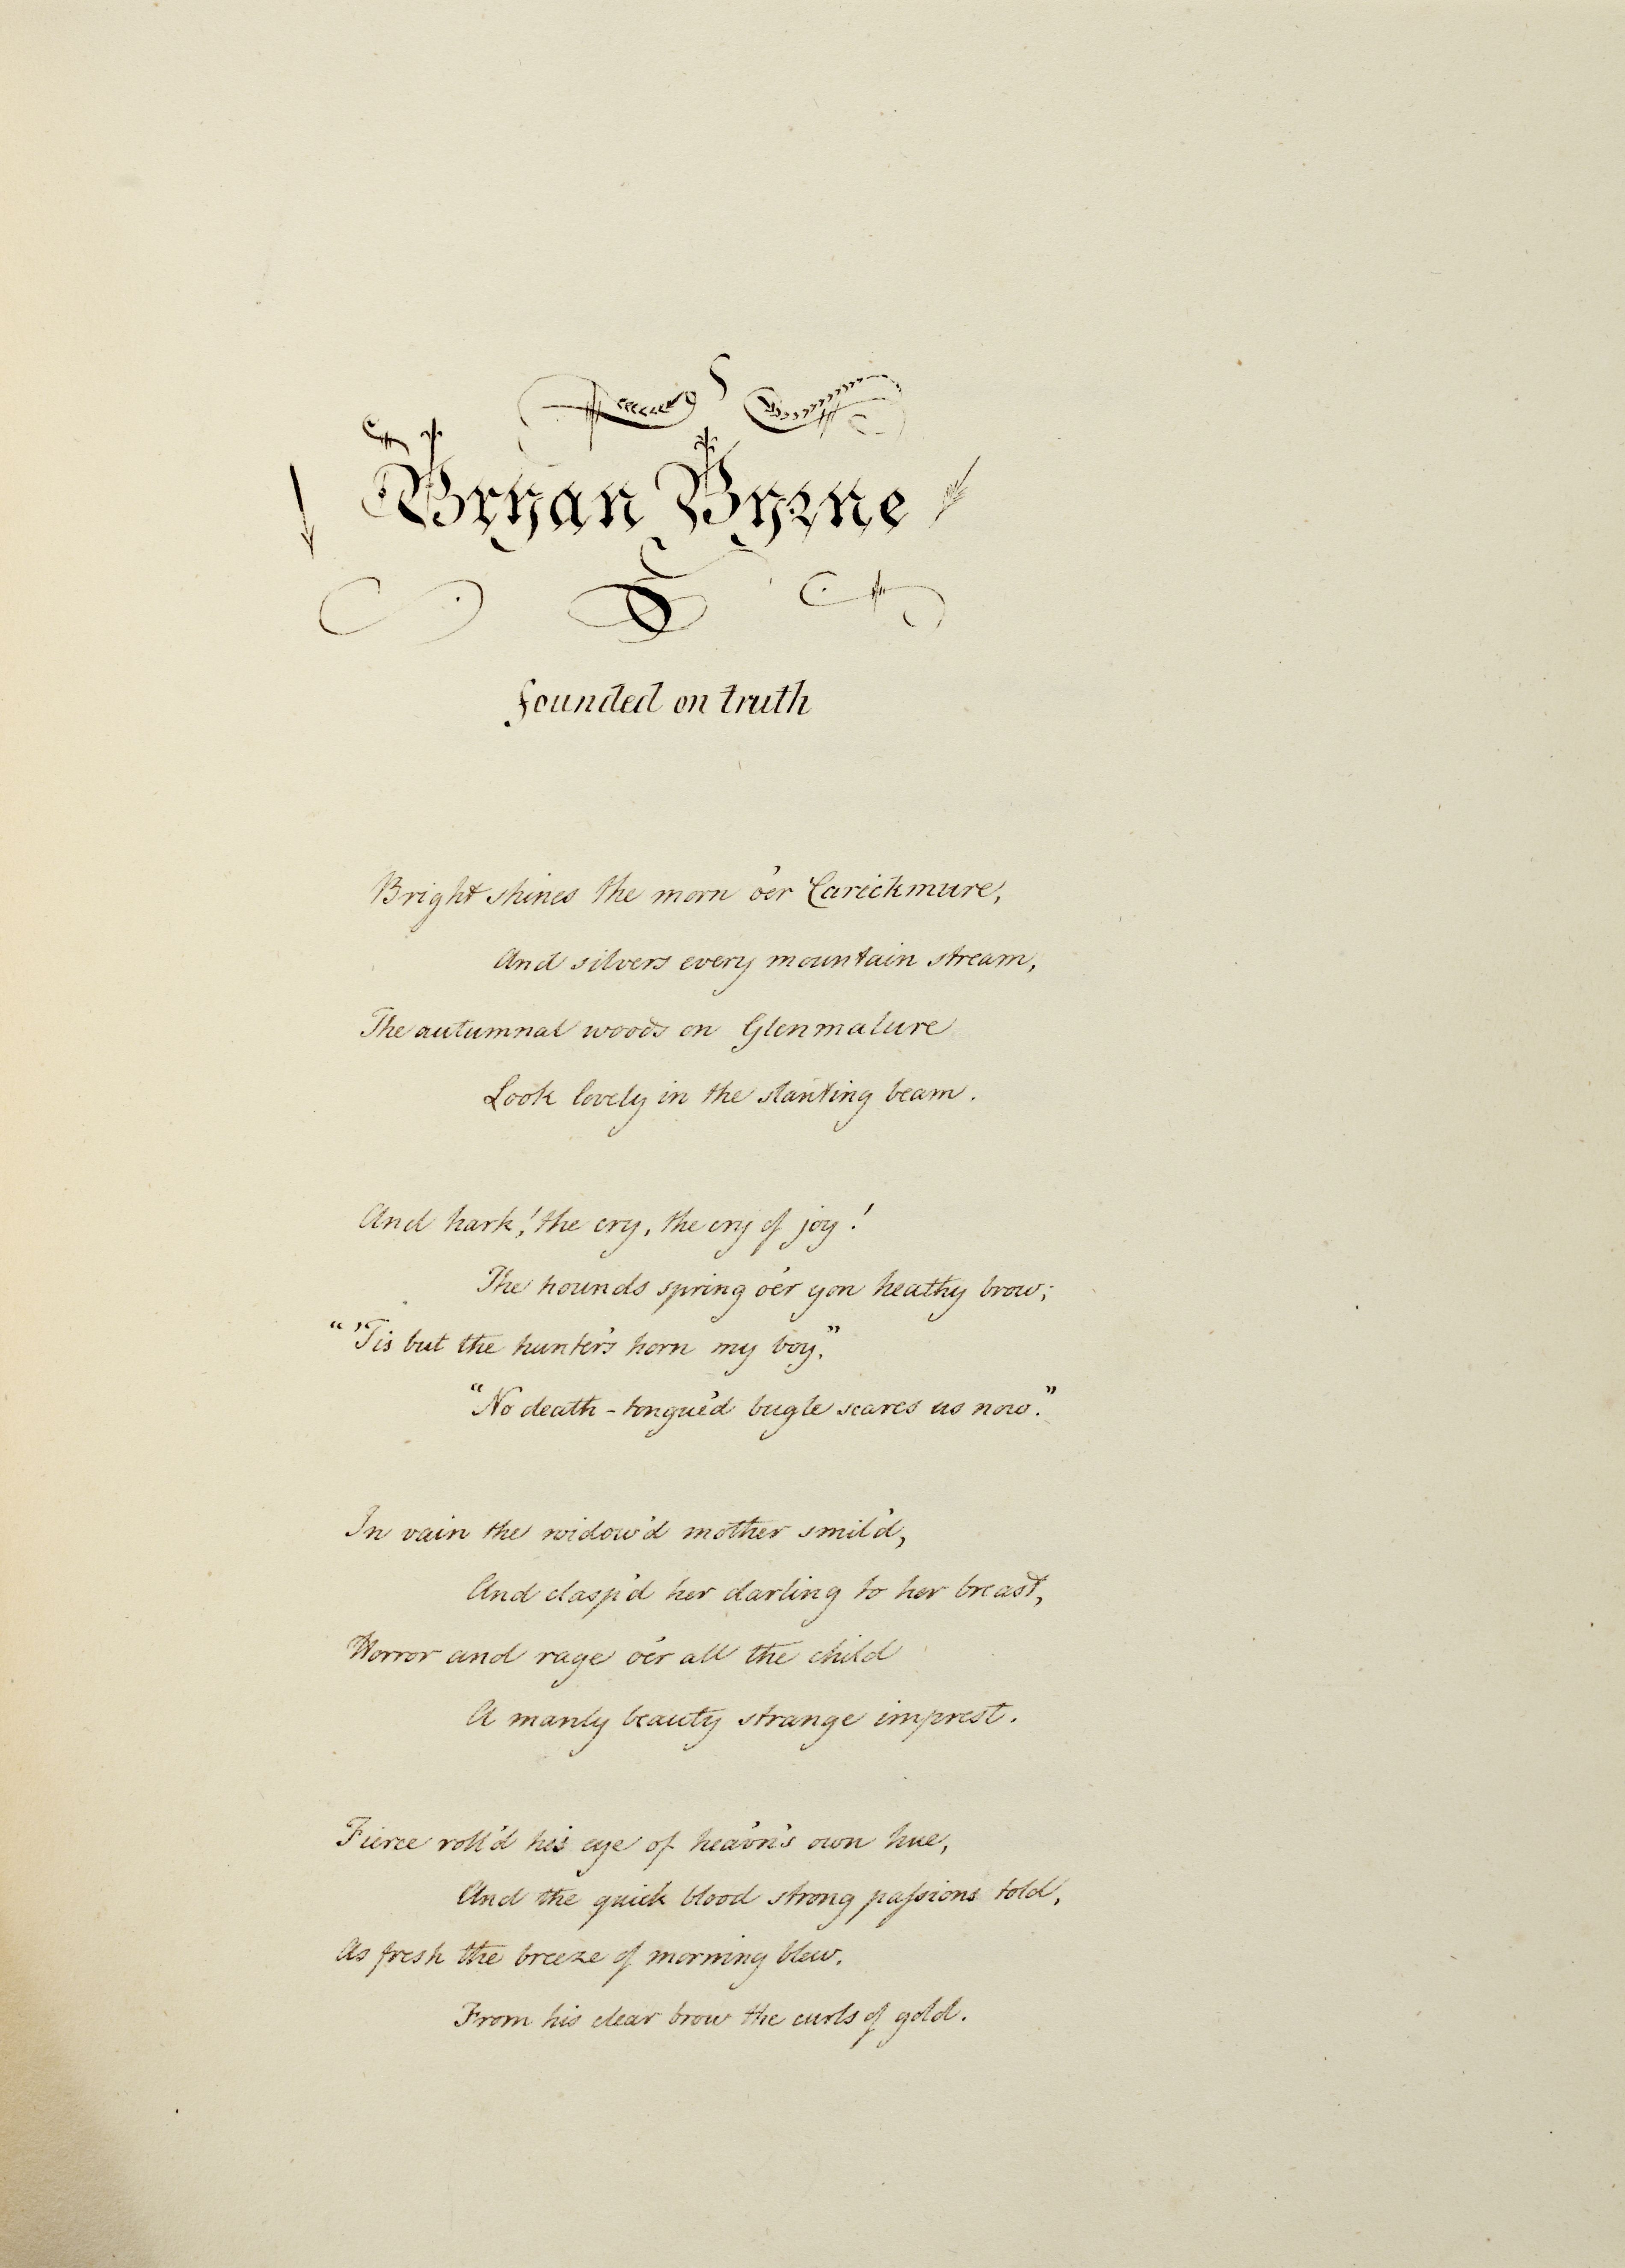 Bryan Byrne
founded on truth
Bright shines the morn o'er Carickmure,
And silvers every mountain stream,
The autumnal woods on Glenmalure
Look lovely in the slanting beam.
And hark! the cry, the cry of joy!
The hounds spring o'er yon heathy brow;
"'Tis but the hunter's horn my boy,"
"No death-tongue'd bugle scares us now."
In vain the widow'd mother smil'd,
And clasp'd her darling to her breast,
Horror and rage o'er all the child
A manly beauty strange imprest.
Fierce roll'd his eye of heav'n's own hue,
And the quick blood strong paſsions told,
As fresh the breeze of morning blew.
From his clear brow the curls of gold.